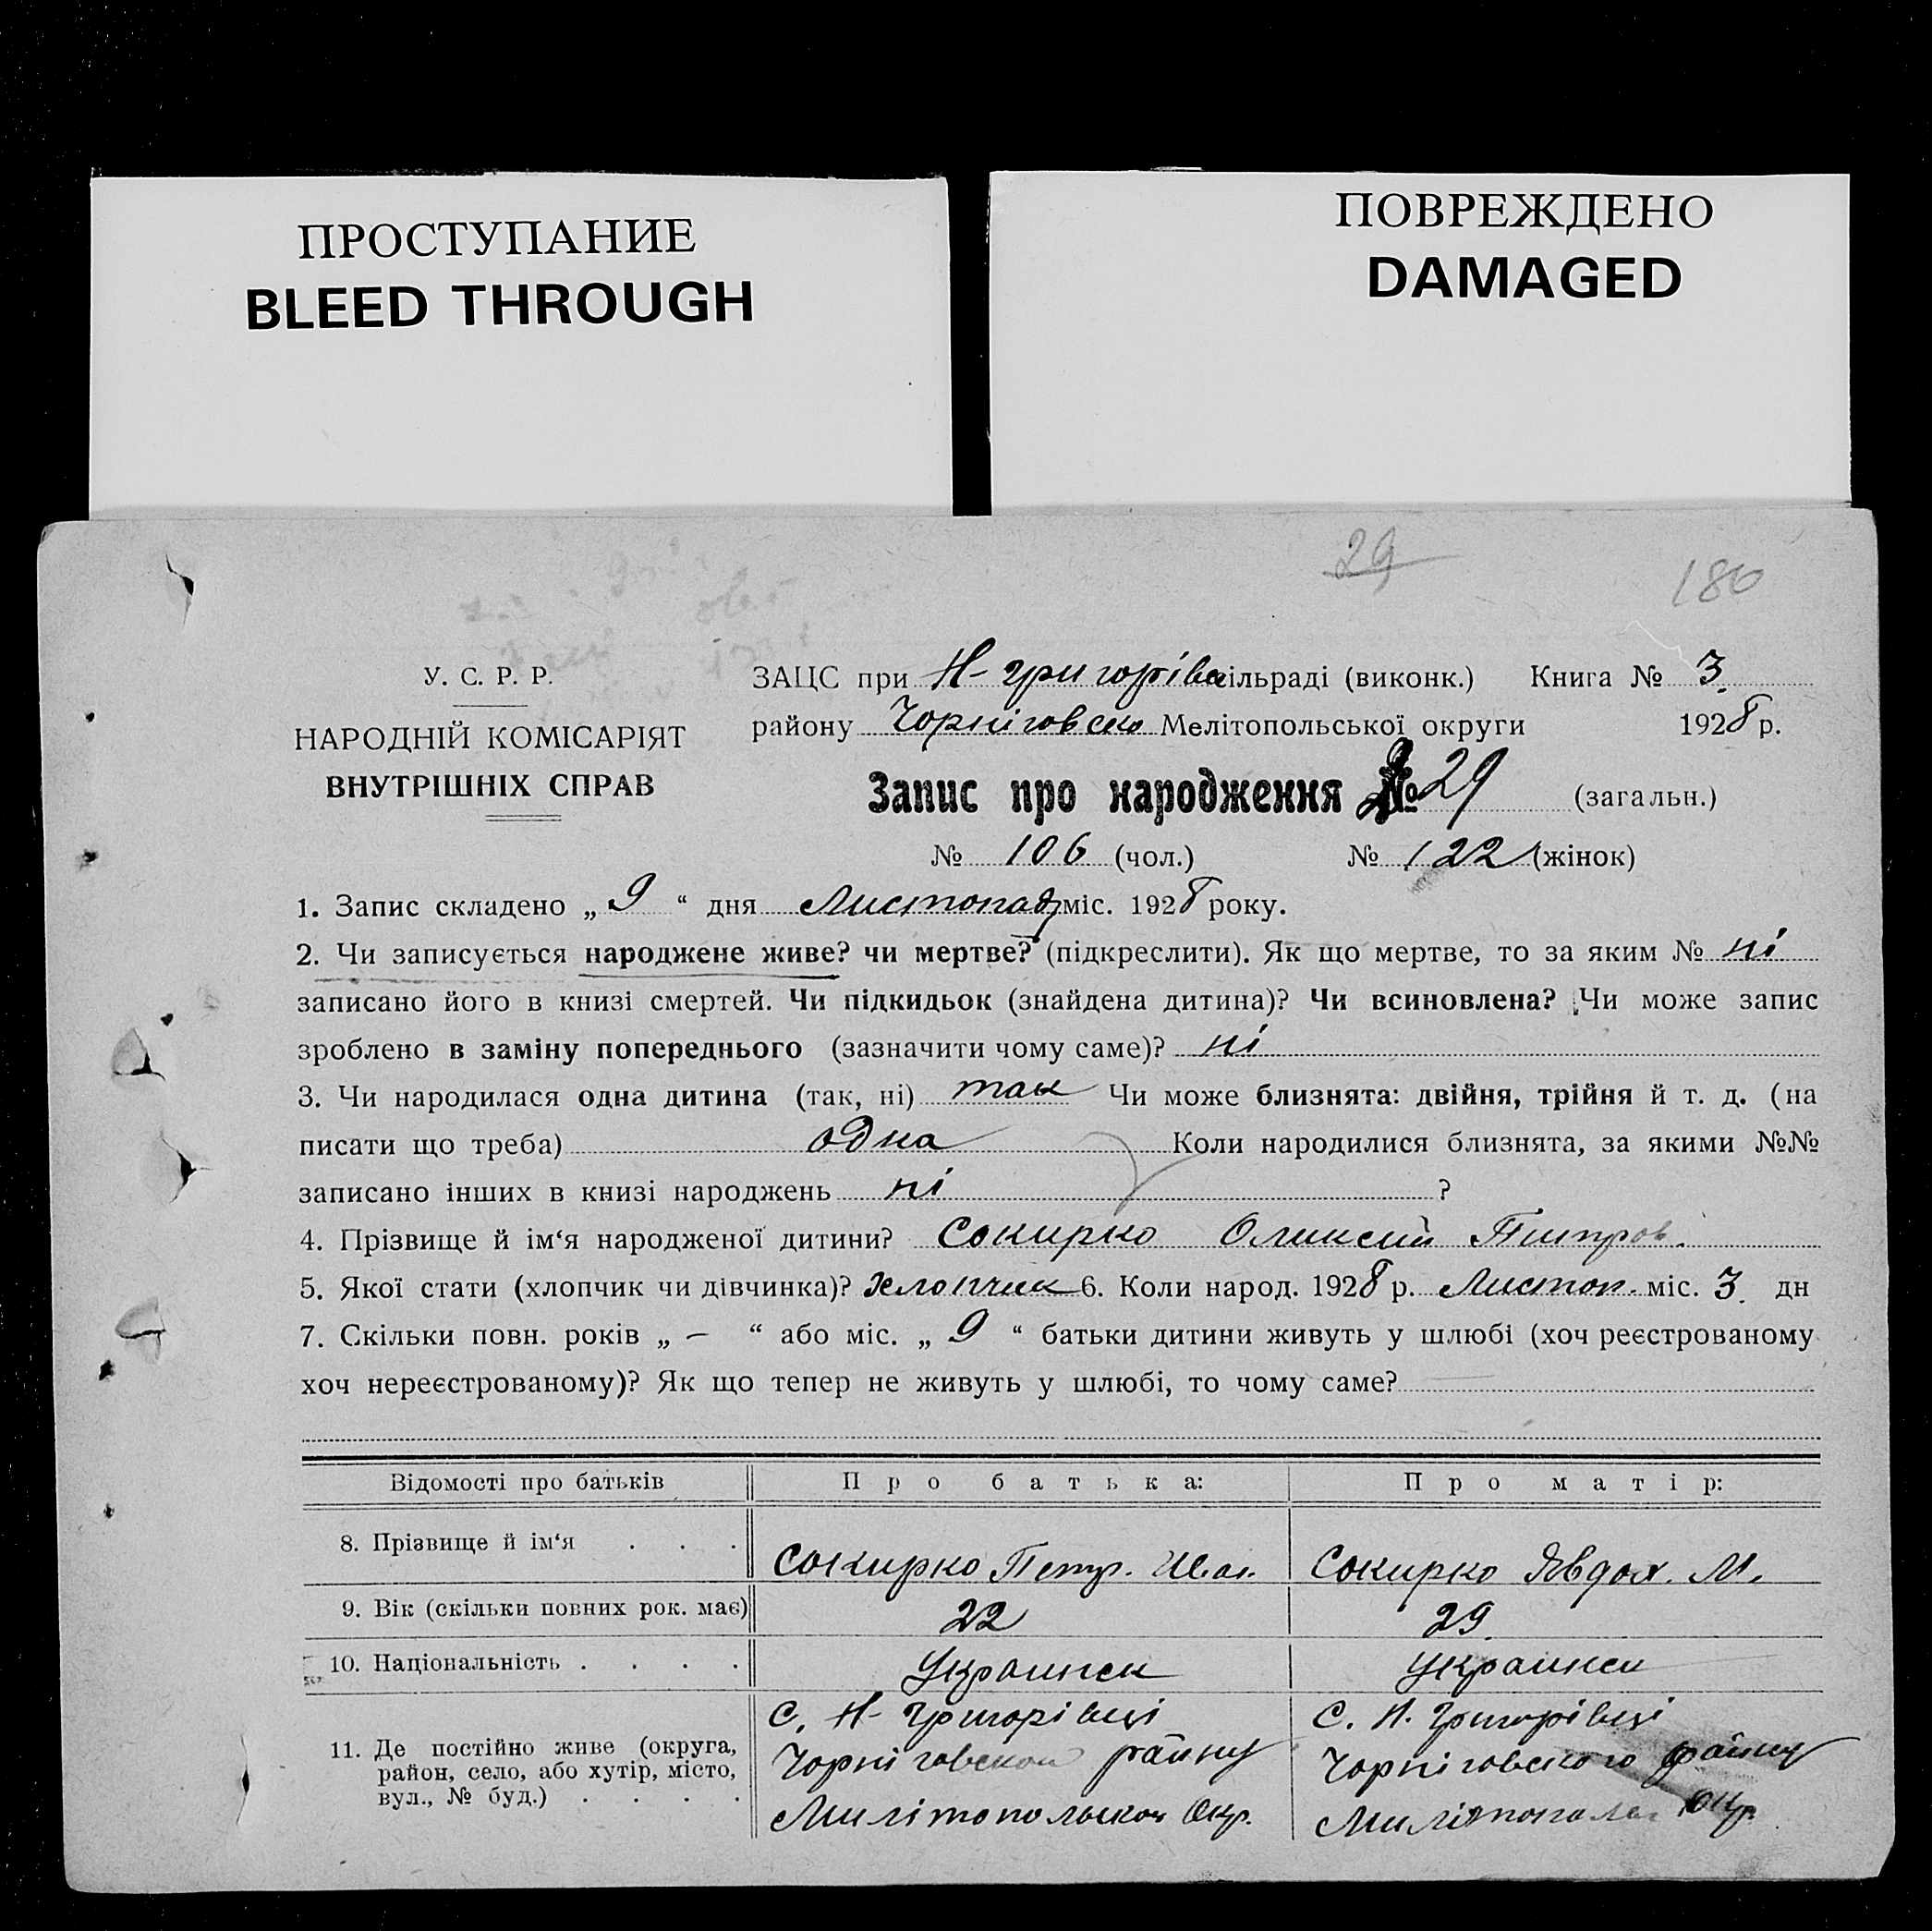 ПРОСТУПАНИЕ
BLEED THROUGH
ПОВРЕЖДЕНО
DAMAGED
29
180
У. С. Р. Р.
НАРОДНІЙ КОМІСАРІЯТ
ВНУТРІШНІХ СПРАВ
ЗАЦС при Н-Григорівс сільраді (виконк.) Книга № 3.
району Чорніговско Мелітопольської округи 1928 р.
Запис про народження № 29 (загальн.)
№ 106 (чол.) № 122 (жінок)
1. Запис складено „ 9 “ дня Листопад міс. 1928 року.
2. Чи записується народжене живе? чи мертве? (підкреслити). Як що мертве, то за яким № ні
записано його в книзі смертей. Чи підкидьок (знайдена дитина)? Чи всиновлена? Чи може запис
зроблено в заміну попереднього (зазначити чому саме)? ні
3. Чи народилася одна дитина (так, ні) так Чи може близнята: двійня, трійня й т. д. (на
писати що треба) одна Коли народилися близнята, за якими №№
записано інших в книзі народжень ні ?
4. Прізвище й ім‘я народженої дитини? Сокирко Оликсий Питров.
5. Якої стати (хлопчик чи дівчинка)? Хлопчик 6. Коли народ. 1928 р. Листоп. міс. 3. дн
7. Скільки повн. років „ – “ або міс. „ 9 “ батьки дитини живуть у шлюбі (хоч реєстрованому
хоч нереєстрованому)? Як що тепер не живуть у шлюбі, то чому саме?
Відомості про батьків Про батька: Про матір:
8. Прізвище й ім‘я . . . Сокирко Петр. Иван. Сокирко Явдох. М.
9. Вік (скільки повних рок. має) 22 29.
10. Національність . . . . Украинси Украинси
11. Де постійно живе (округа, район, село, або хутір, місто, вул., № буд.) . . . .
С. Н-Григорівці
Чорніговскои району
Милітопольскои Окр.
С. Н. Григорівці
Чорніговского району
Милітопольс Окр.